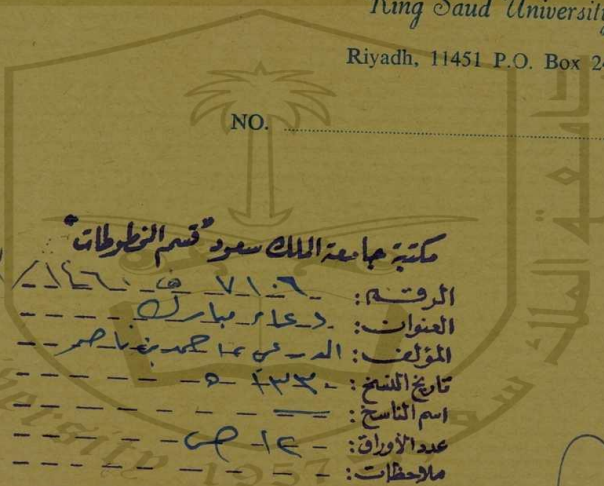 King Saud University
Riyadh, 11451 P.O. Box 24
NO.
مكتبة جامعة الملك سعود "قسم المخطوطات"
الرقم: ٧١٠٦ ف ١٤٦١/
العنوان: دعاء مبارك
المؤلف: الدرعي، احمد بن ناصر
تاريخ النسخ: ١٣٣٠ هـ
اسم الناسخ:
عدد الأوراق: ١٢ ص
ملاحظات:
جامعة الملك سعود
versity 1957